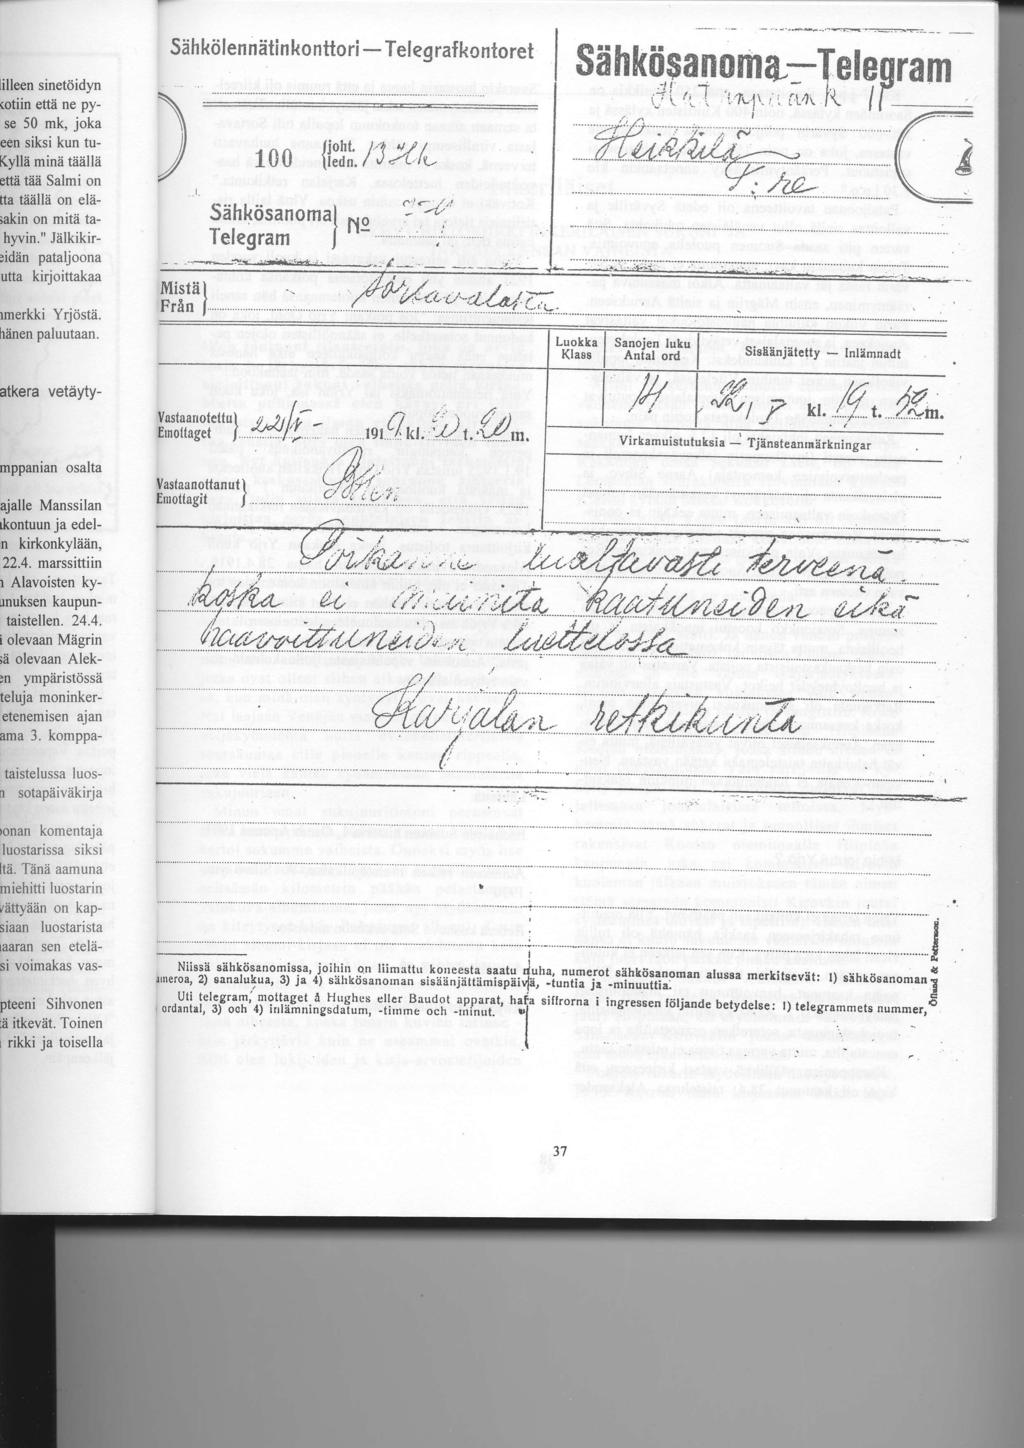 illeen sinetöidyn
kotiin että ne py-
se 50 mk, joka
een siksi kun tu-
Kyllä minä täällä
että tää Salmi on
tta täällä on elä-
sakin on mitä ta-
hyvin." Jälkikir-
eidän pataljoona
utta kirjoittakaa
merkki Yrjöstä.
hänen paluutaan.
atkera vetäyty-
mppanian osalta
ajalle Manssilan
kontuun ja edel-
n kirkonkylään,
22.4. marssittiin
Alavoisten ky-
unuksen kaupun-
taistellen. 24.4.
i olevaan Mägrin
sä olevaan Alek-
en ympäristössä
teluja moninker-
etenemisen ajan
ama 3. komppa-
taistelussa luos-
n sotapäiväkirja
onan komentaja
luostarissa siksi
ltä. Tänä aamuna
miehitti luostarin
vättyään on kap-
siaan luostarista
aaran sen etelä-
si voimakas vas-
pteeni Sihvonen
ä itkevät. Toinen
rikki ja toisella
Sähkölennätinkonttori — Telegrafkontoret
100 {joht. ledn.
Sähkösanoma} Telegram } №
Sähkösanoma — Telegram
11
Heikkilä
T:re
Mistä} Från } Sortavalasta
Luokka Klass
Sanojen luku Antal ord
Sisäänjätetty — Inlämnadt
14 22/5 kl. 19 t. 52 m.
Vastaanotettu} Emottaget } 22/5 1919 kl. 20 t. 20 m.
Virkamuistutuksia — Tjänsteanmärkningar
Vastaanottanut} Emottagit }
Poikanne luultavasti terveenä
koska ei mainita kaatuneiden eikä
haavoittuneiden luettelossa
Karjalan retkikunta
Niissä sähkösanomissa, joihin on liimattu koneesta saatu nauha, numerot sähkösanoman alussa merkitsevät: 1) sähkösanoman
numeroa, 2) sanalukua, 3) ja 4) sähkösanoman sisäänjättämispäivää, -tuntia ja -minuuttia.
Uti telegram, mottaget å Hughes eller Baudot apparat, hafa siffrorna i ingressen följande betydelse: 1) telegrammets nummer,
ordantal, 3) och 4) inlämningsdatum, -timme och -minut.
Öflund & Pettersson.
37